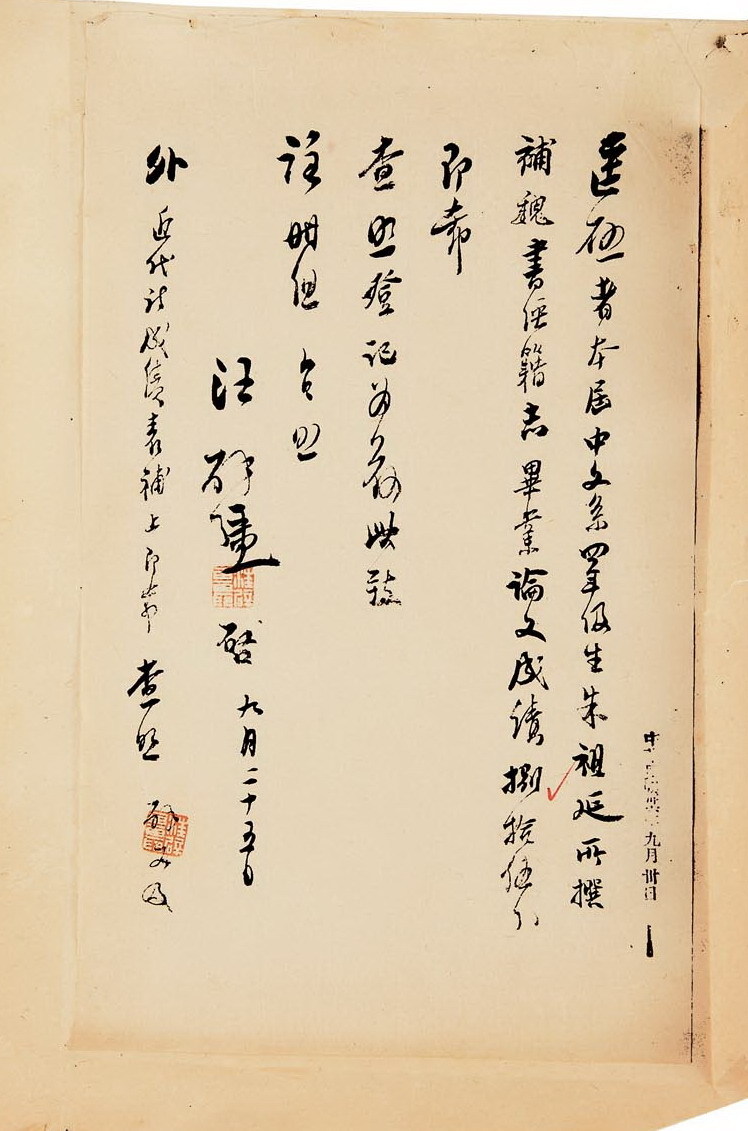 九月卅日
逕啟者本屆中文系四年級生朱祖延所撰
補魏書經籍志畢業論文成績捌拾伍分
即希
查照登記為荷此致
註册組 台照
汪辟疆 啟 九月二十五日
外 近代詩成績表補上即希 查照 又及